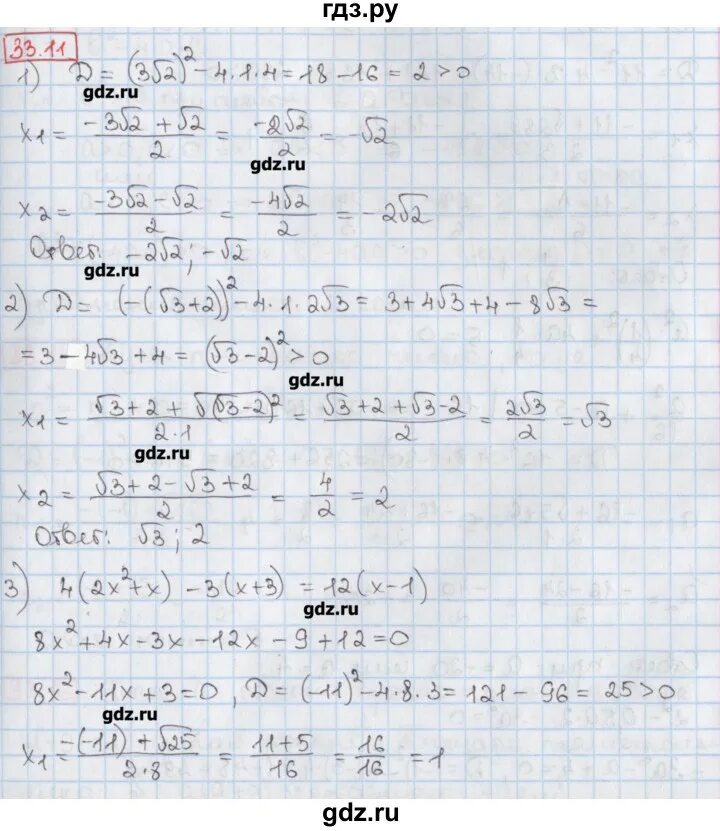 гдз.ру
33.11
1) D = (3√2)² - 4·1·4 = 18 - 16 = 2 > 0
gdz.ru
x₁ = (-3√2 + √2)/2 = (-2√2)/2 = -√2
gdz.ru
x₂ = (-3√2 - √2)/2 = (-4√2)/2 = -2√2
Ответ: -2√2; -√2
gdz.ru
2) D = (-(√3+2))² - 4·1·2√3 = 3 + 4√3 + 4 - 8√3 =
= 3 - 4√3 + 4 = (√3-2)² > 0
gdz.ru
x₁ = (√3+2+√(√3-2)²)/(2·1) = (√3+2+√3-2)/2 = 2√3/2 = √3
gdz.ru
x₂ = (√3+2-√3+2)/2 = 4/2 = 2
Ответ: √3; 2
3) 4(2x²+x) - 3(x+3) = 12(x-1)
gdz.ru
8x² + 4x - 3x - 12x - 9 + 12 = 0
8x² - 11x + 3 = 0, D = (-11)² - 4·8·3 = 121 - 96 = 25 > 0
gdz.ru
x₁ = (-(-11) + √25)/(2·8) = (11+5)/16 = 16/16 = 1
gdz.ru
gdz.ru